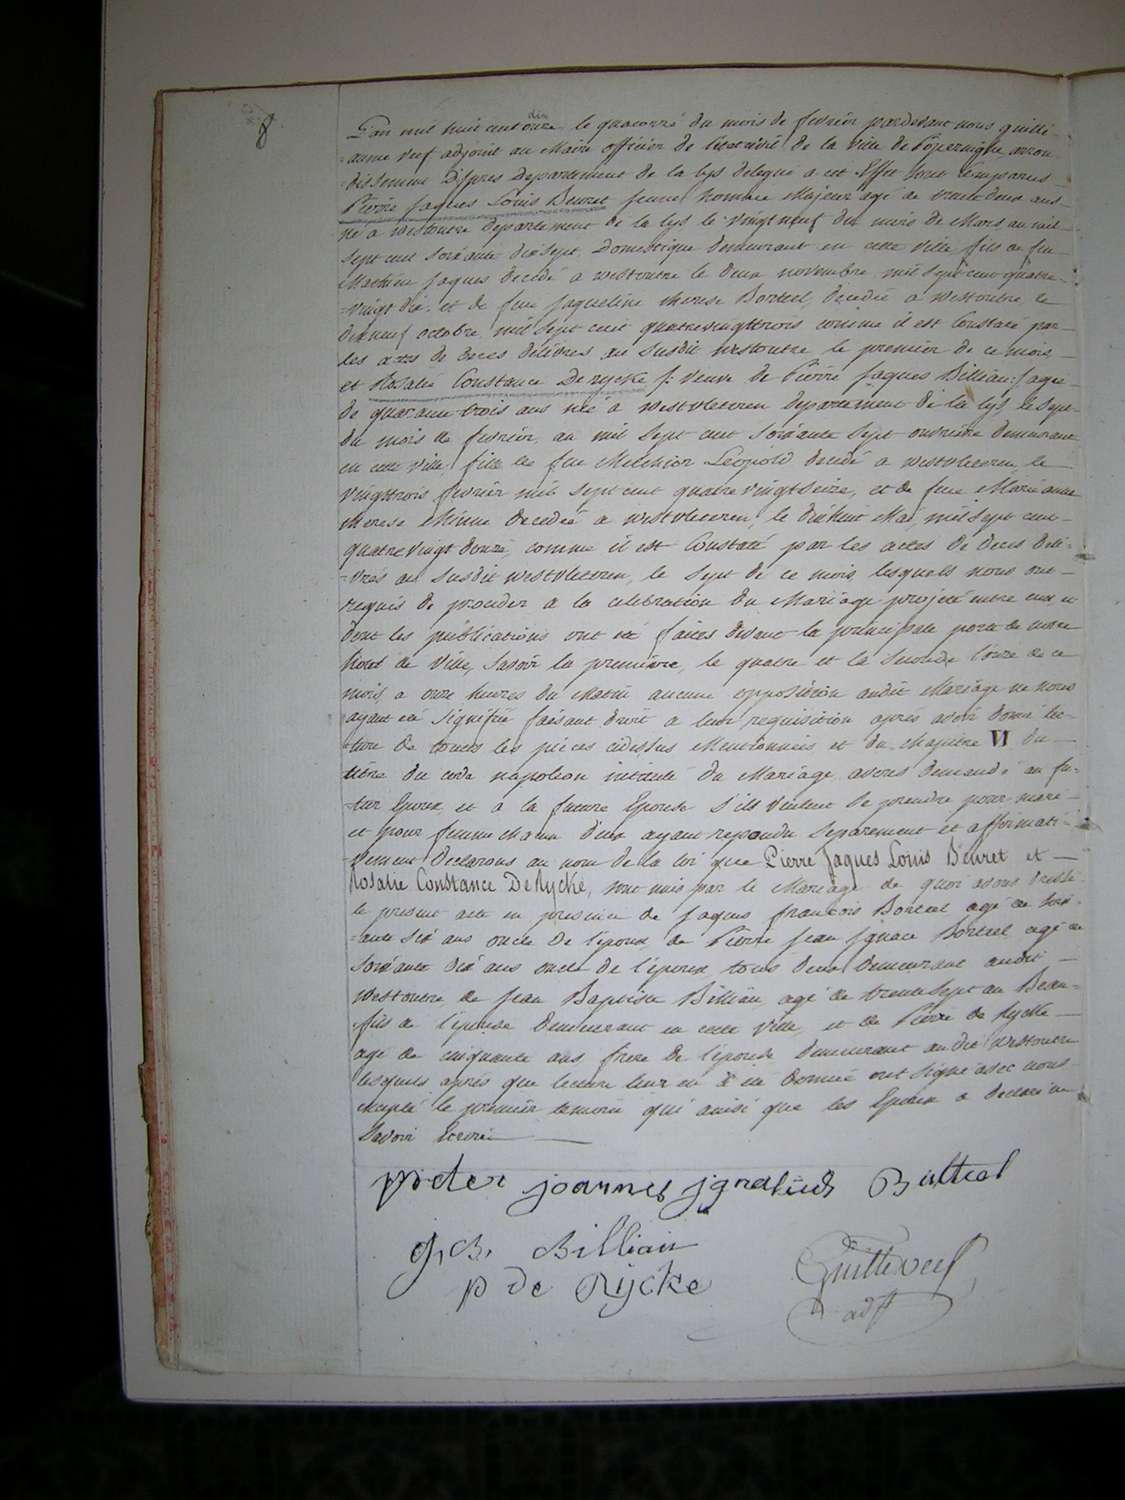 8.
L'an mil huit cent dix le quatorze du mois de fevrier pardevant nous guill-
-aume verf adjoint au Maire officier de l'état civil de la Ville de Poperinghe arron-
-dissement D'ypres Departement de la lys delegué a cet Effet sont comparus
Pierre Jaques Louis Beuret jeune homme Majeur agé de trente deux ans
né a westoutre departement de la lys le vingt neuf du mois de Mars an mil
sept cent soixante dix sept Domestique demeurant en cette Ville fils de feu
Mathieu Jaques decedé a westoutre le deux novembre mil sept cent quatre
-vingt dix et de feue Jaqueline therese Borteel, decedée a westoutre le
dixneuf octobre mil sept cent quatrevingttrois comme il est Constaté par
les actes de Deces délivrés au susdit westoutre le premier de ce mois
et Rosalie Constance De rycke f: veuve de Pierre Jaques Billiau: / agée
de quarante trois ans née a westvleteren departement de la lys le sept
du mois de fevrier an mil sept cent soixante sept ouvriere demeurant
en cette ville, fille de feu Melchior Leopold decedé a westvleteren, le
vingttrois fevrier mil sept cent quatre vingtseize, et de feue Marie anne
therese Minne decedée a westvleteren, le dixhuit Mai, mil sept cent
quatrevingt douze, comme il est Constaté par les actes de deces deli-
-vrés au susdit westvleteren, le sept de ce mois, lesquels nous ont
requis de proceder a la celebration du Mariage projeté entre eux et
dont les publications ont été faites devant la principale porte de notre
hotel de Ville, savoir la première, le quatre et la seconde l'onze de ce
mois a onze heures du Matin aucune opposition audit Mariage ne nous
ayant été signifiée faisant droit a leur requisition après avoir donné lec-
-ture de toutes les pièces cidessus Mentionnées et du chapitre VI du
titre du code napoleon intitulé du Mariage avons demandé au fu-
-tur Epoux et a la future Epouse s'ils veulent se prendre pour mari
et pour femme chacun d'eux ayant repondu separement et affirmati-
-vement declarons au nom de la loi que Pierre Jaques Louis Beuret et
Rosalie Constance De Rycke, sont unis par le Mariage de quoi avons dressé
le present acte en presence de Jaques françois Borteel agé de soix-
-ante six ans oncle De l'epoux, de Pierre Jean Ignace Borteel agé de
soixante dix ans oncle de l'époux tous deux demeurant audit
westoutre de Jean Baptiste Billiau agé de trente sept an Beau-
-fils de l'épouse demeurant en cette Ville, et de Pierre de Rycke
agé de cinquante ans frere de l'épouse demeurant au dit westoutre
lesquels après que lecture leur en a été donnée ont signé avec nous
excepté le premier temoin qui ainsi que les Epoux a declaré ne
savoir Ecrire
pieter joannes ignatius Bulteel
J, B, Billiau
p de Rijcke
Guille verf
adjt